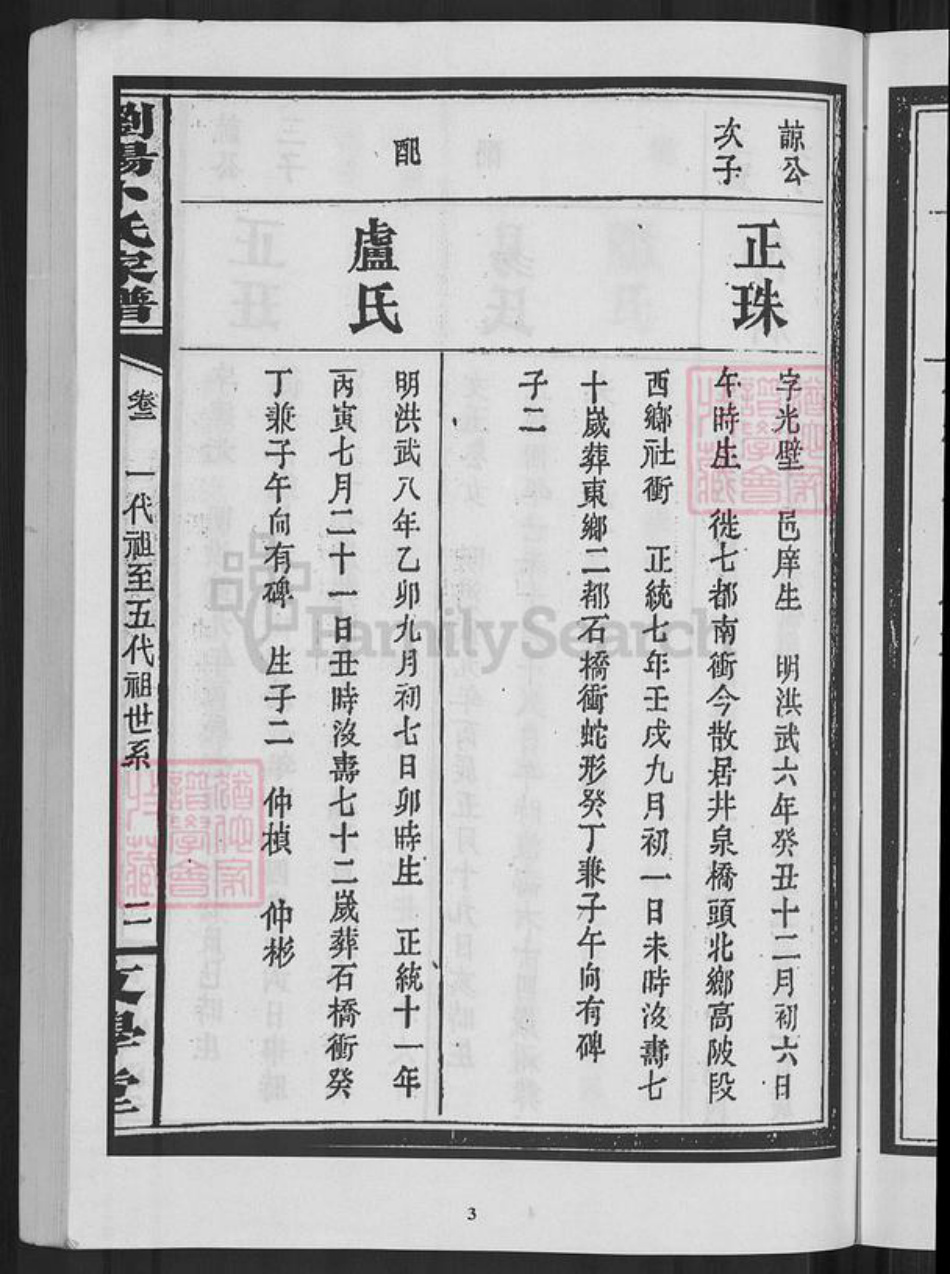 諒公
次子
正珠
字光壁 邑庠生 明洪武六年癸丑十二月初六日
午時生 徙七都南衝今散居井泉橋頭北鄉高陂段
西鄉社衝 正統七年壬戌九月初一日未時沒壽七
十歲葬東鄉二都石橋衝蛇形癸丁兼子午向有碑
子二
配
盧氏
明洪武八年乙卯九月初七日卯時生 正統十一年
丙寅七月二十一日丑時沒壽七十二歲葬石橋衝癸
丁兼子午向有碑 生子二 仲楨 仲彬
卷二 一代祖至五代祖世系
FamilySearch
3